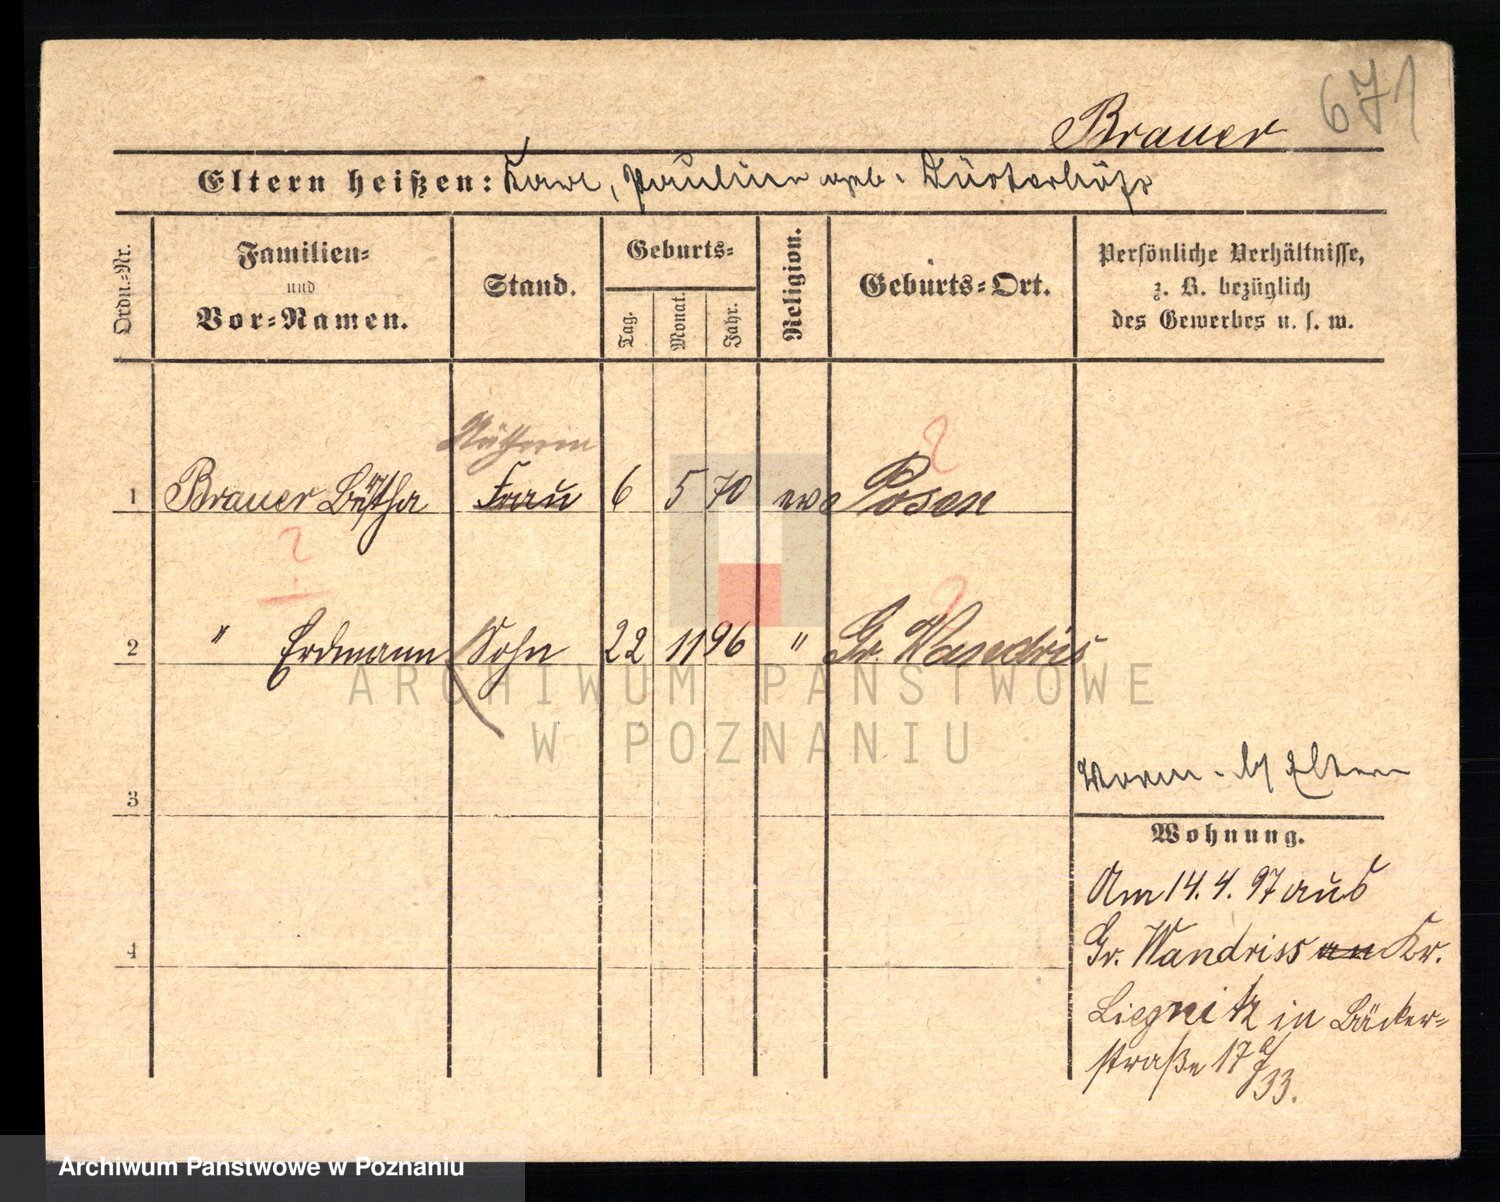 671
Brauer
Eltern heißen: Karl, Pauline geb. Düsterhöft
Ordn.-Nr.
Familien-
und
Vor-Namen.
Stand.
Geburts-
Tag.
Monat.
Jahr.
Religion.
Geburts-Ort.
Persönliche Verhältnisse,
z. B. bezüglich
des Gewerbes u. s. w.
Nätherin
?
1 Brauer Bertha Frau 6 5 70 ev Posen
?
?
2 " Erdmann Sohn 22 11 96 " Gr. Wandris
ARCHIWUM PAŃSTWOWE
W POZNANIU
3
Eltern
Wohnung.
Am 14.4.97 aus
4
Gr. Wandriss an Kr.
Liegnitz in Bäcker-
straße 17
33.
Archiwum Państwowe w Poznaniu